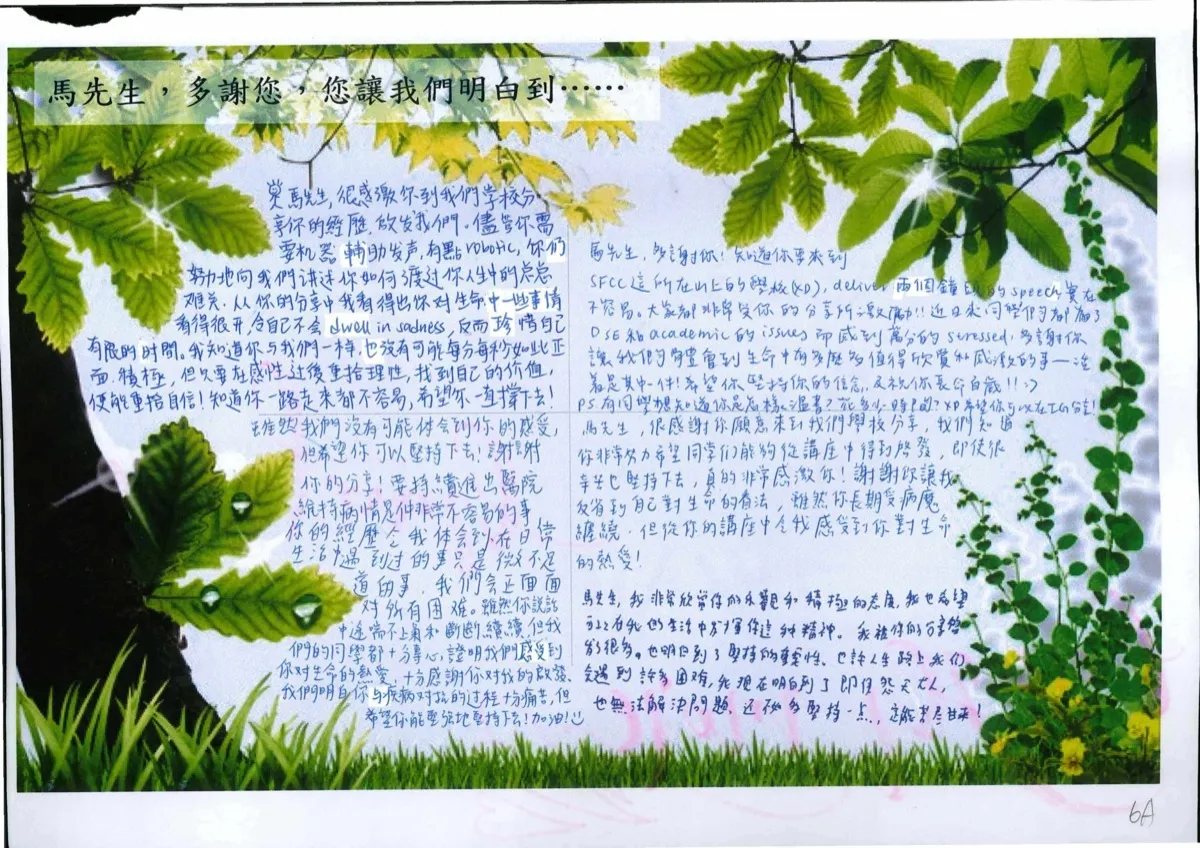 馬先生，多謝您，您讓我們明白到……
馬先生，很感激你到我們學校分
享你的經歷，啟发我們。儘管你需
要机器輔助发声，有點robotic，你仍
努力地向我們讲述你如何渡过你人生中的总总
难关。从你的分享中我看得出你对生命中一些事情
看得很开，令自己不会dwell in sadness，反而珍惜自己
有限的时間。我知道你与我們一样，也沒有可能每分每秒如此正
面，積極，但只要在感性过後重拾理性，找到自己的价值，
便能重拾自信！知道你一路走来都不容易，希望你一直撐下去！
雖然我們沒有可能体会到你的感受，
但希望你可以堅持下去！謝謝
你的分享！要持續進出醫院
維持病情是件非常不容易的事
你的經歷令我体會到在日常
生活中遇到过的事只是微不足
道的事，我們会正面面
对所有困难。雖然你說話
中途喘不上氣和斷斷續續，但我
們的同學都十分專心，證明我們感受到
你对生命的熱愛，十分感謝你对我的啟發。
我們明白你与疾病对抗的过程十分痛苦，但
希望你能要兒地堅持下去！加油！
馬先生，多謝你！知道你要來到
SFCC這所在山上的學校(XD)，deliver 兩個鐘的speech實在
不容易。大家都非常受你的分享所激勵!! 近日來同學們都為了
DSE和academic的issues而感到萬分的stressed，多謝你
讓我們學習會到生命中有多麼多值得欣賞和感激的事——活
着是其中一件！希望你堅持你的信念，及祝你長命百歲!! :)
P.S. 有同學想知道你是怎樣溫書？花多少時間？XD
馬先生，很感謝你願意來到我們學校分享，我們知道
你非常努力希望同學們能夠從講座中得到啟發，即使很
辛苦也堅持下去，真的非常感激你！謝謝你讓我
反省到自己對生命的看法，雖然你長期受病魔
纏繞，但從你的講座中令我感受到你對生命
的熱愛！
馬先生，我非常欣賞你的樂觀和積極的态度，我也希望
可以在我的生活中发揮你這种精神。我被你的分享啟
發很多。也明白到了堅持的重要性。也許人生路上我們
会遇到許多困难，我現在明白到了即使怨天尤人，
也無法解決問題，还不如多堅持一点，定能苦尽甘來！
6A